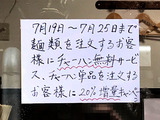 7月19日〜7月25日まで
麺類を注文するお客
様にチャーハン無料サービ
ス、チャーハン単品を注文する
お客様に20%増量チャーハン